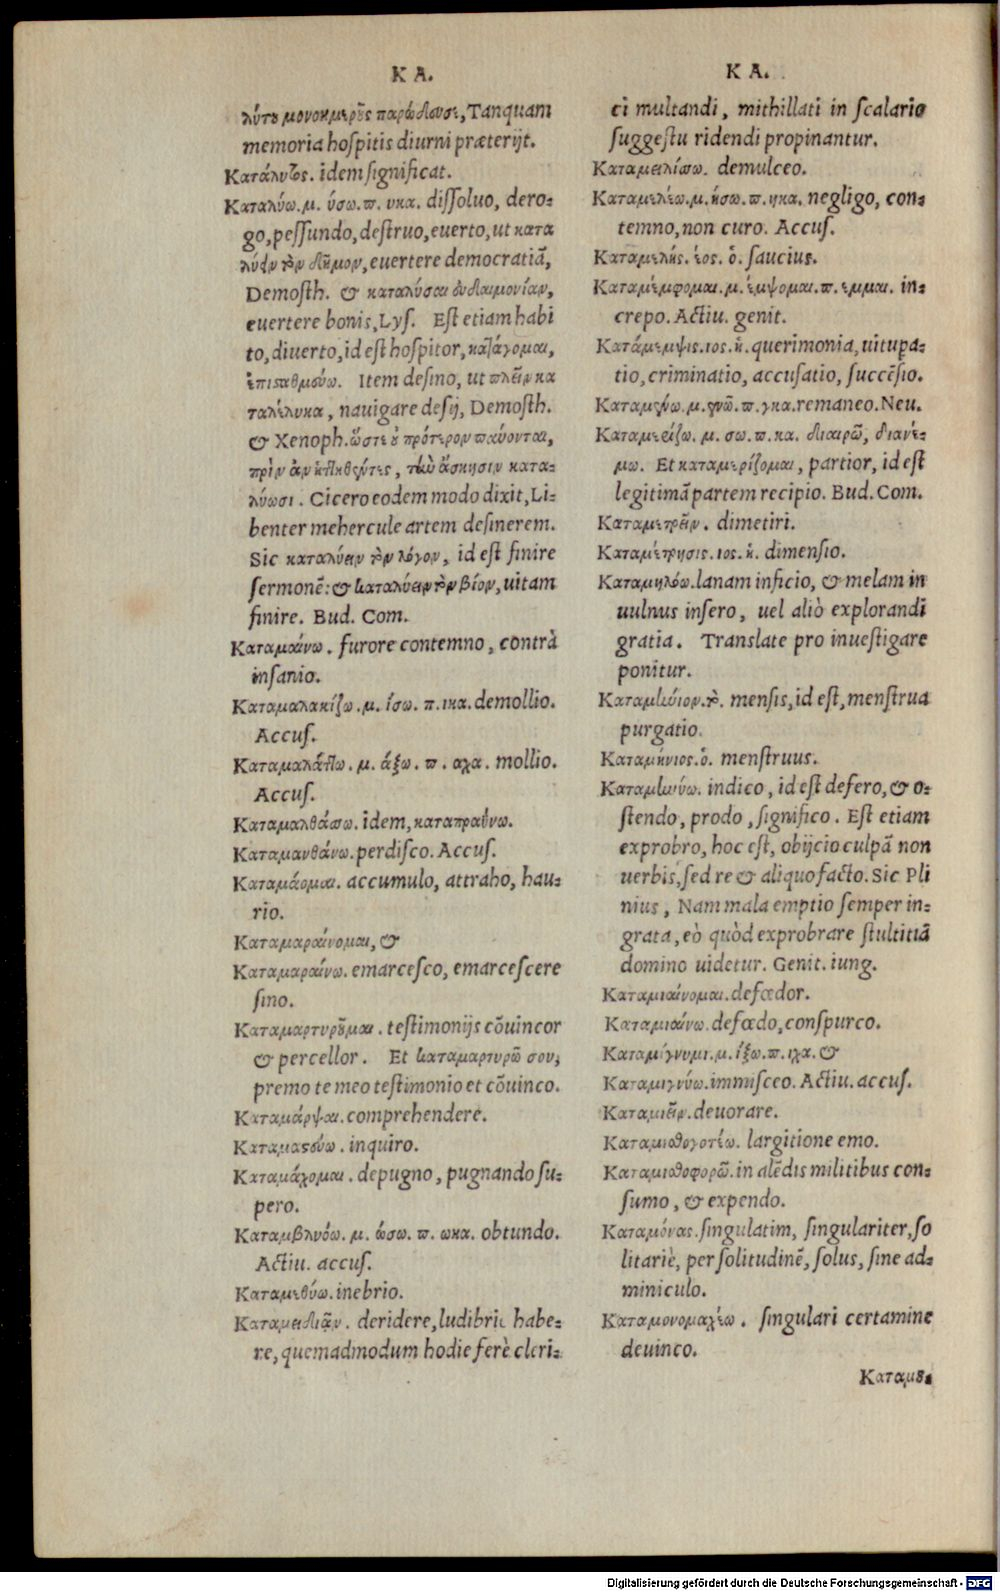 ΚΑ.
λύτου μονοημερȣ͂ς παρώδευσε, Tanquam
memoria hoſpitis diurni præterijt.
Κατάλυτος. idem ſignificat.
Καταλύω. μ. ύσω. π. υκα. diſſoluo, dero-
go, peſſundo, deſtruo, euerto, ut κατα
λύειν τὸν δῆμον, euertere democratiã,
Demoſth. & καταλύσαι ἐυδαιμονίαν,
euertere bonis, Lyſ. Eſt etiam habi
to, diuerto, id eſt hoſpitor, κατάγομαι,
ἐπισταθμεύω. Item deſino, ut πλεῖν κα
ταλέλυκα, nauigare deſij, Demoſth.
& Xenoph. ὥστε ὀ πρότερον παύονται,
πρὶν ἀν
λύωσι. Cicero eodem modo dixit, Li-
benter mehercule artem deſinerem.
Sic καταλύειν τὸν λόγον, id eſt finire
ſermonẽ: & καταλύειν τὸν βίον, uitam
finire. Bud. Com.
Καταμαίνω. furore contemno, contrà
inſanio.
Καταμαλακίζω. μ. ίσω. π. ικα. demollio.
Accuſ.
Καταμαλάττω. μ. άξω. π. αχα. mollio.
Accuſ.
Καταμαλθάσω. idem, καταπραΰνω.
Καταμανθάνω. perdiſco. Accuſ.
Καταμάομαι. accumulo, attraho, hau-
rio.
Καταμαραίνομαι, &
Καταμαραίνω. emarceſco, emarceſcere
ſino.
Καταμαρτυρȣ͂μαι. teſtimonijs cõuincor
& percellor. Et καταμαρτυρῶ σου,
premo te meo teſtimonio et cõuinco.
Καταμάρψαι. comprehendere.
Καταμαστεύω. inquiro.
Καταμάχομαι. depugno, pugnando ſu-
pero.
Καταμβλυόω. μ. ώσω. π. ωκα. obtundo.
Actiu. accuſ.
Καταμεθύω. inebrio.
Καταμειδιᾷν. deridere, ludibrii habe-
re, quemadmodum hodie ferè cleri-
ΚΑ.
ci multandi, mithillati in ſcalario
ſuggeſtu ridendi propinantur.
Καταμειλίσω. demulceo.
Καταμελέω. μ. ήσω. π. ηκα. negligo, con-
temno, non curo. Accuſ.
Καταμελής. έος. ὁ. ſaucius.
Καταμέμφομαι. μ. έμψομαι. π. εμμαι. in-
crepo. Actiu. genit.
Κατάμεμψις. ιος. ἡ. querimonia, uitupa-
tio, criminatio, accuſatio, ſuccẽſio.
Καταμένω. μ. ενῶ. π. γκα. remaneo. Neu.
Καταμερίζω. μ. σω. π. κα. διαιρῶ, διανέ-
μω. Et καταμερίζομαι, partior, id eſt
legitimã partem recipio. Bud. Com.
Καταμετρεῖν. dimetiri.
Καταμέτρησις. ιος. ἡ. dimenſio.
Καταμηλόω. lanam inficio, & melam in
uulnus inſero, uel aliò explorandi
gratia. Translate pro inueſtigare
ponitur.
Καταμήνιον. τὸ. menſis, id eſt, menſtrua
purgatio.
Καταμήνιος. ὁ. menſtruus.
Καταμηνύω. indico, id eſt defero, & o-
ſtendo, prodo, ſignifico. Eſt etiam
exprobro, hoc eſt, obijcio culpã non
uerbis, ſed re & aliquo facto. Sic Pli
nius, Nam mala emptio ſemper in-
grata, eò quòd exprobrare ſtultitiã
domino uidetur. Genit. iung.
Καταμιαίνομαι. defœdor.
Καταμιαίνω. defœdo, conſpurco.
Καταμίγνυμι. μ. ίξω. π. ιχα. &
Καταμιγνύω. immiſceo. Actiu. accuſ.
Καταμιεῖν. deuorare.
Καταμισθογοτέω. largitione emo.
Καταμισθοφορῶ. in alẽdis militibus con-
ſumo, & expendo.
Καταμόνας. ſingulatim, ſingulariter, ſo
litariè, per ſolitudinẽ, ſolus, ſine ad-
miniculo.
Καταμονομαχέω. ſingulari certamine
deuinco.
Καταμȣ-
Digitalisierung gefördert durch die Deutsche Forschungsgemeinschaft - DFG